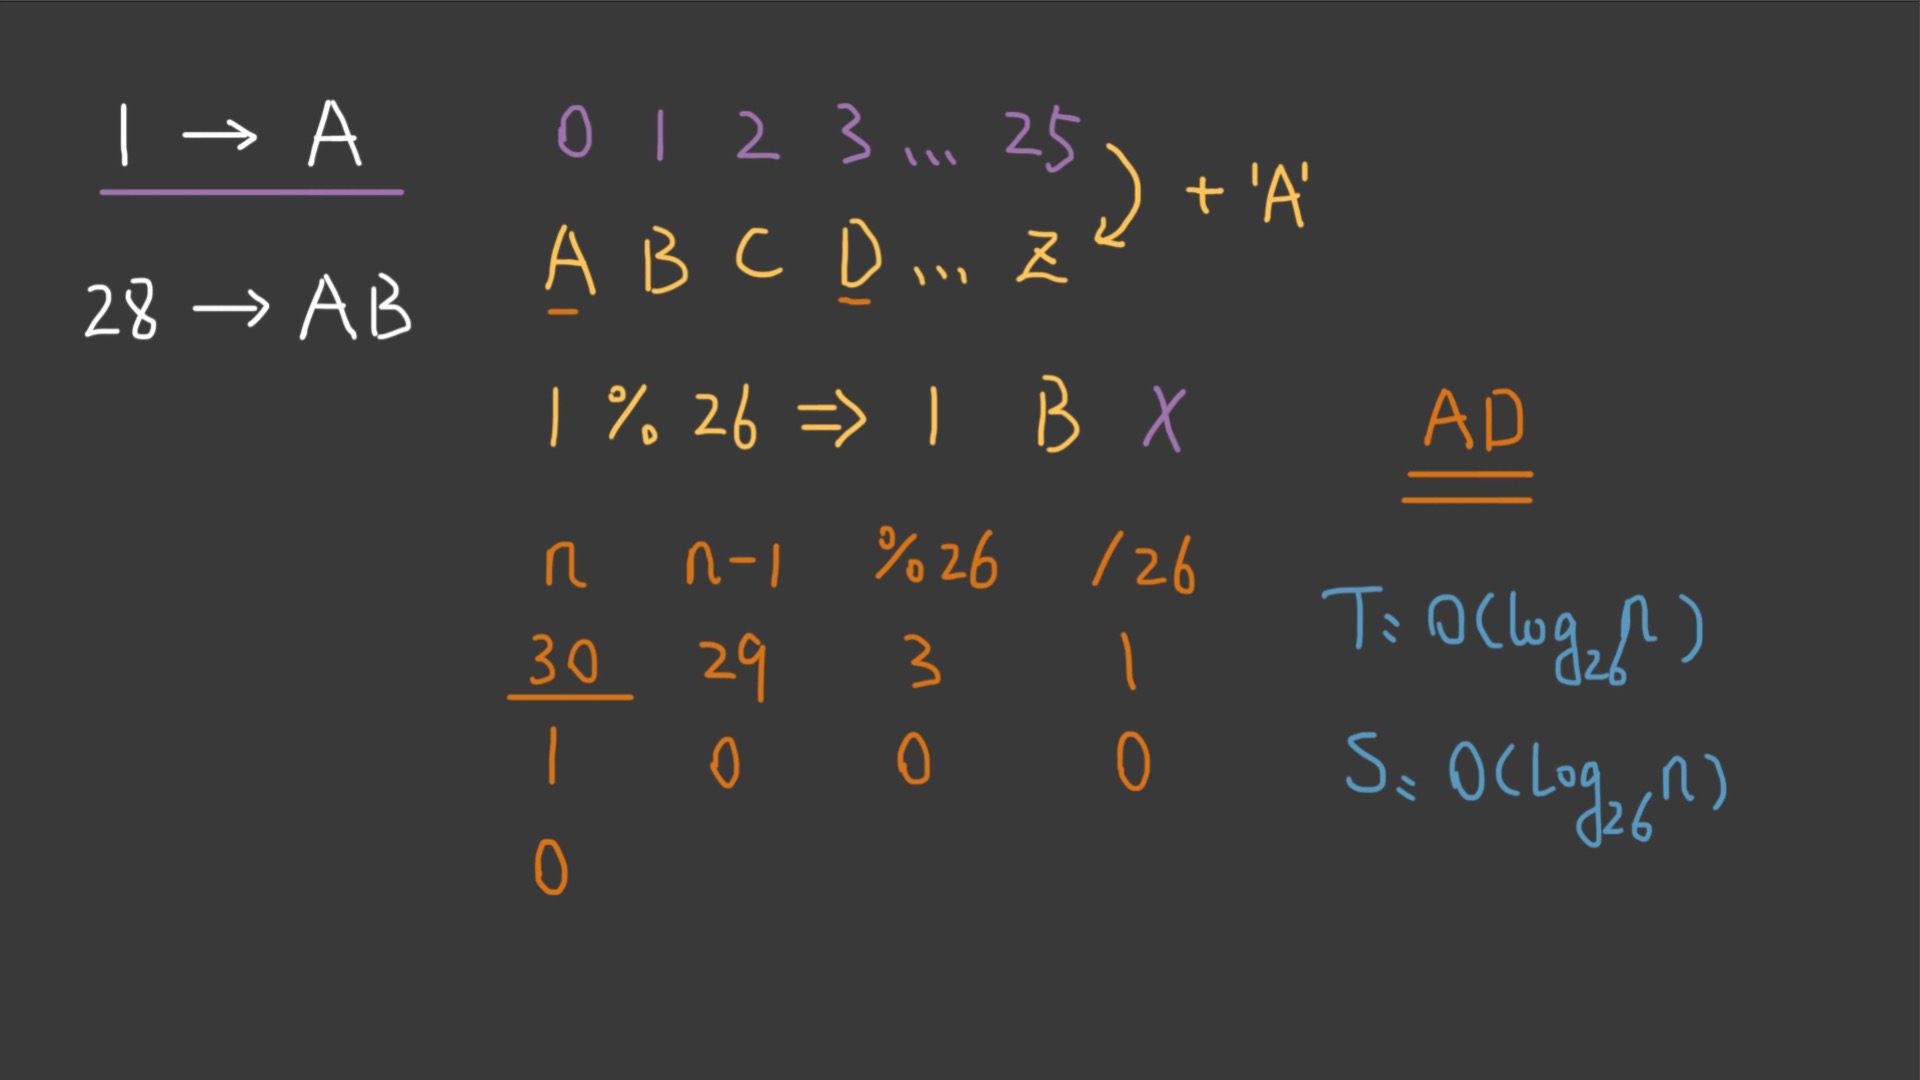 1 → A
28 → AB
0 1 2 3 ... 25
+ 'A'
A B C D ... Z
1 % 26 ⇒ 1 B X
AD
n n-1 %26 /26
30 29 3 1
1 0 0 0
0
T: O(log₂₆n)
S: O(log₂₆n)